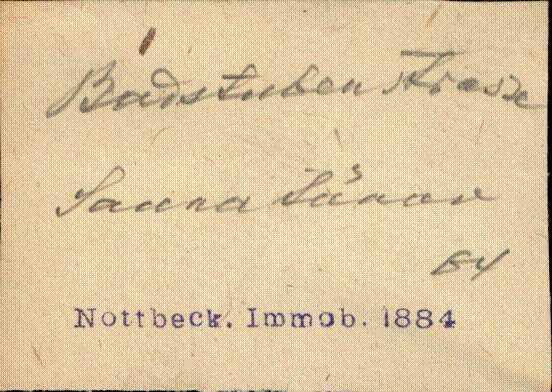 Badstuben strasse
Sauna tänav
64
Nottbeck. Immob. 1884